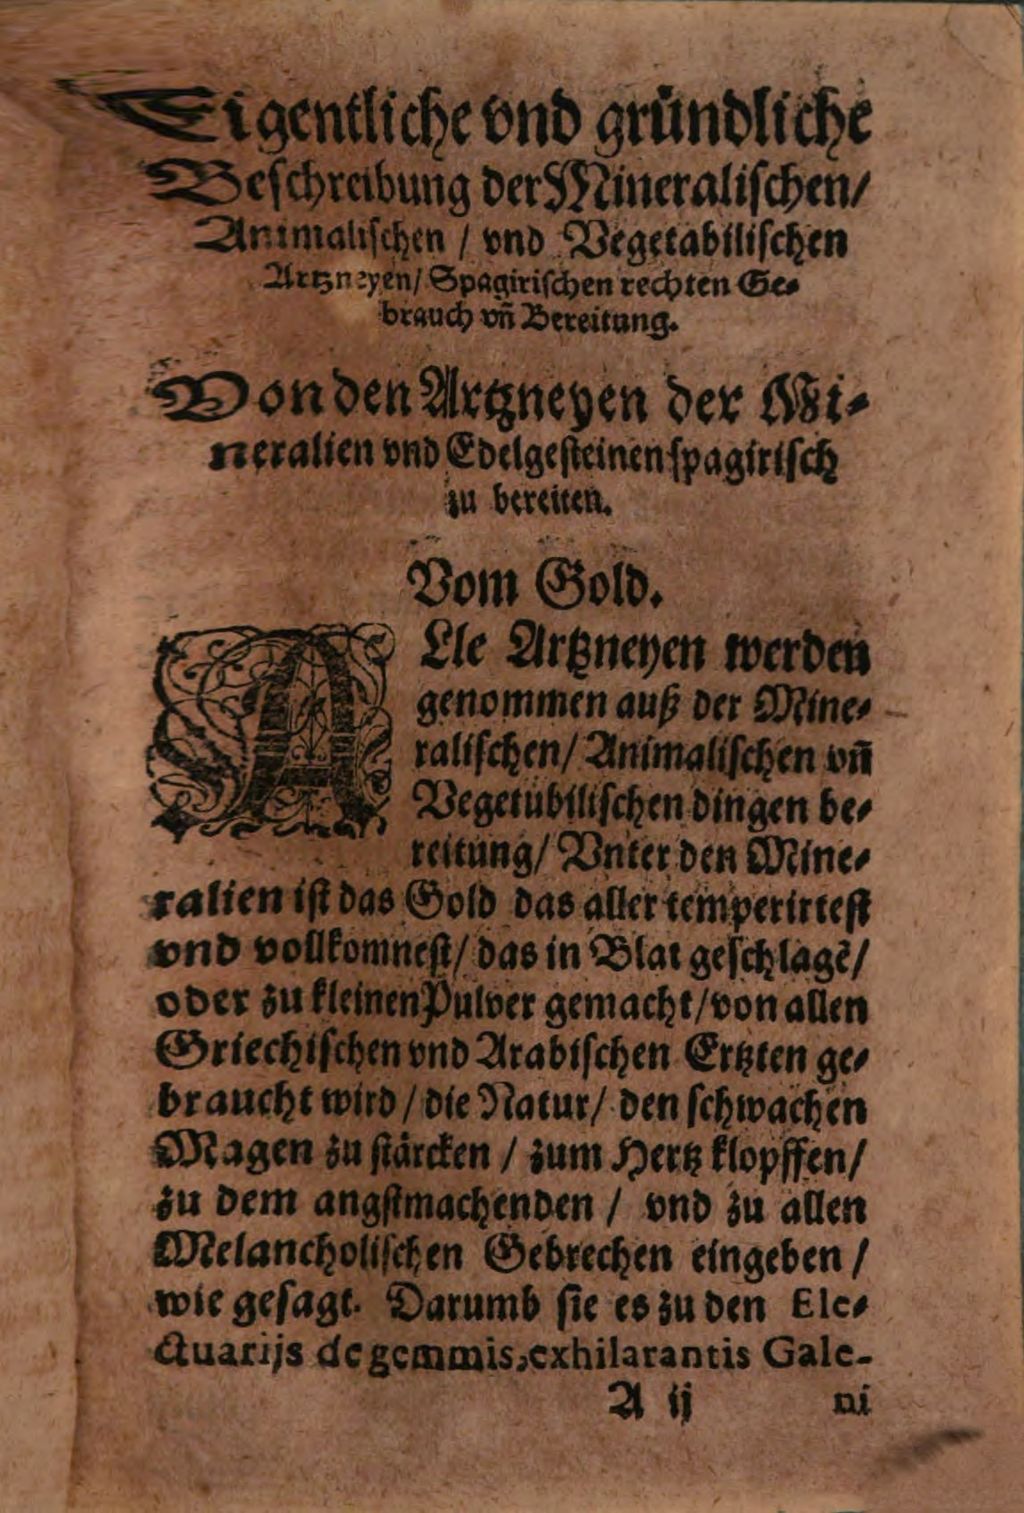 Eigentliche vnd gründliche
Beschreibung der Mineralischen/
Animalischen / vnd Vegetabilischen
Artzneyen/ Spagirischen rechten Ge-
brauch vñ Bereitung.
Von den Artzneyen der Mi-
neralien vnd Edelgesteinen spagirisch
zu bereiten.
Vom Gold.
ALle Artzneyen werden
genommen auß der Mine-
ralischen/ Animalischen vñ
Vegetubilischen dingen be-
reitung/ Vnter den Mine-
ralien ist das Gold das aller temperirtest
vnd vollkomnest/ das in Blat geschlagẽ/
oder zu kleinen Pulver gemacht/ von allen
Griechischen vnd Arabischen Ertzten ge-
braucht wird / die Natur/ den schwachen
Magen zu stärcken / zum Hertz klopffen/
zu dem angstmachenden / vnd zu allen
Melancholischen Gebrechen eingeben /
wie gesagt. Darumb sie es zu den Ele-
ctuarijs de gemmis, exhilarantis Gale-
A ij ni